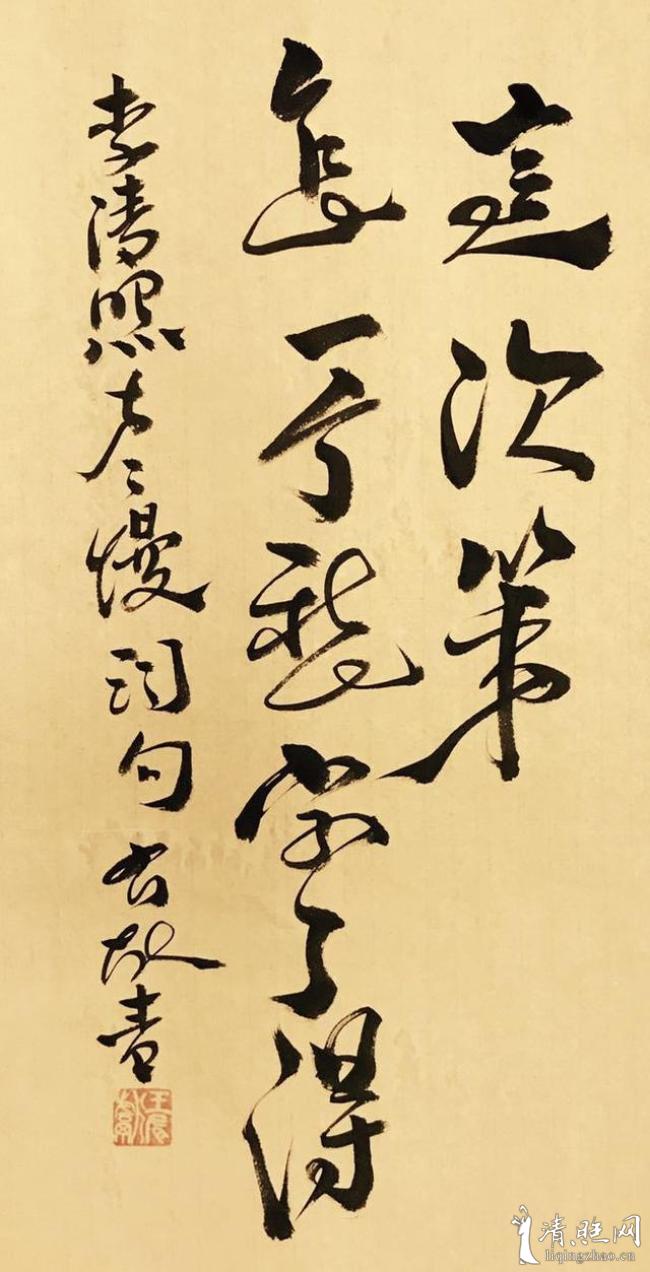 這次第
怎一个愁字了得
李清照声声慢詞句 書
清照网
liqingzhao.cn